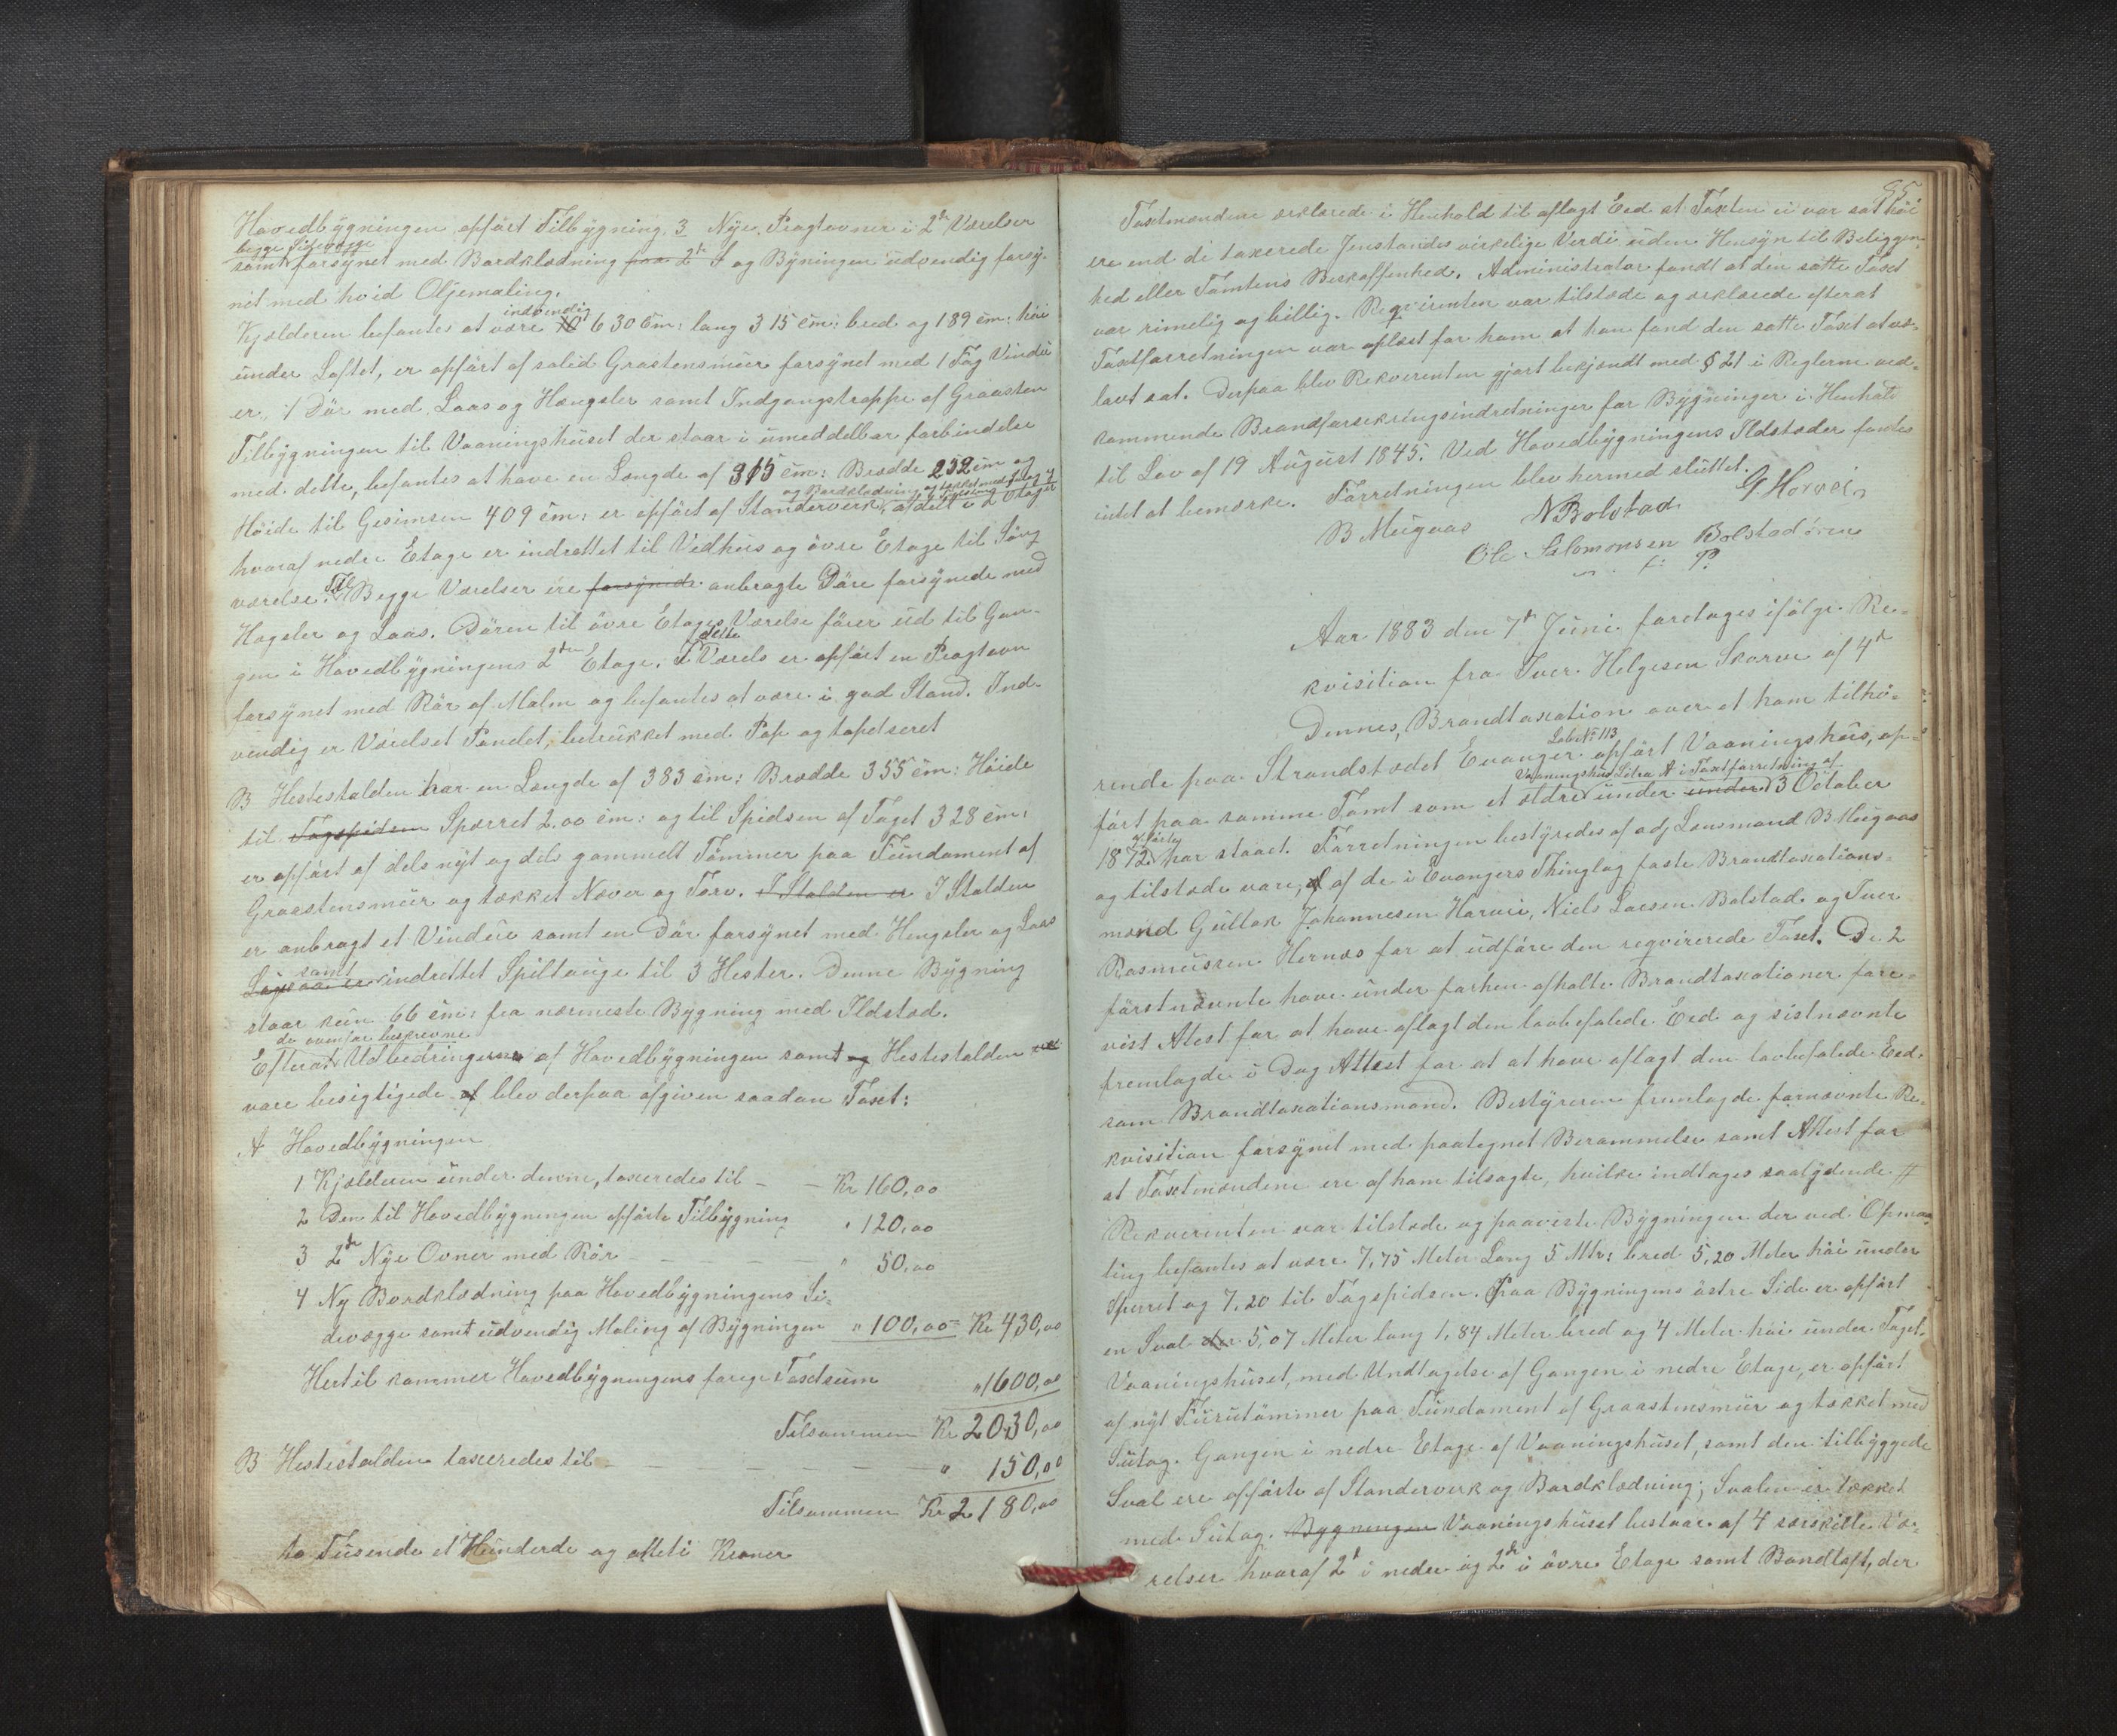 Hovedbygningen opført Tilbygning, 3 Nye Pragtovner i 2de Værelser
begge Sidevægge
samt forsynet med Bordklædning paa 2de S og Byningen udvendig forsy-
net med hvid Oljemaling.
indvendig
Kjælderen befantes at være 630 Cm: lang 315 cm: bred og 189 cm: høi
under Loftet, er opført af solid Graastensmuur forsynet med 1 Fag Vindu
er, 1 Dør med Laas og Hængsler samt Indgangstrappe af Graasten
Tilbygningen til Vaaningshuset der staar i umeddelbar forbindelse
med dette, befantes at have en Længde af 315 cm: Bredde 252 cm og
og Bordklædning og tækket med
Høide til Gesimsen 409 cm: er opført af Standerverk, afdelt i 2 Etager
hvoraf nedre Etage er indrettet til Vedhus og øvre Etage til Sæng
værelse. Til Begge Værelser ere forsynede anbragte Døre forsynede med
Hægsler og Laas. Døren til øvre Etages Værelse fører ud til Gan-
gen i Hovedbygningens 2den Etage. I dette Værels er opført en Pragtovn
forsynet med Rør af Malm og befantes at være i god Stand. Ind-
vendig er Værelset Pandet, betrukket med Pap og tapetseret
B Hestestalden har en Længde af 383 cm: Bredde 355 cm: Høide
til Tagspidsen Sperret 2,00 cm: og til Spidsen af Taget 328 cm:
er opført af dels nyt og dels gammelt Tømmer paa Fundament af
Graastensmuur og tækket Næver og Torv. I Stalden er I Stalden
er anbragt et Vindue samt en Dør forsynet med Hengsler og Laas
samt
indrettet Spiltauge til 3 Hester. Denne Bygning
staar kun 66 cm: fra nærmeste Bygning med Ildsted.
de ovenfor beskrevne
Efterat Udbedringerne af Hovedbygningen samt og Hestestalden
vare besigtigede blev derpaa afgiven saadan Taxt:
A Hovedbygningen
1 Kjælderen under denne, taxeredes til — — Kr 160,00
2 Den til Hovedbygningen opførte Tilbygning " 120,00
3 2de Nye Ovner med Rør — — — " 50,00
4 Ny Bordklædning paa Hovedbygningens Si-
devægge samt udvendig Maling af Bygningen " 100,00 = Kr 430,00
Hertil kommer Hovedbygningens forige Taxtsum "1600,00
Tilsammen Kr 2030,00
B Hestestalden taxeredes til — — — — " 150,00
Tilsammen Kr 2180,00
to Tusende et Hunderde og otteti Kroner
85
Taxtmændene erklærede i Henhold til aflagt Eed at Taxten ei var sat høi
ere end de taxerede Jenstandes virkelige Verdi uden Hensyn til Beliggen
hed eller Tomtens Beskaffenhed. Administrator fandt at den satte Taxt
var rimelig og billig. Reqvirenten var tilstede og erklærede efterat
Taxtforretningen var oplæst for ham at han fand den satte Taxt at væ-
lavt sat. Derpaa blev Rekverenten gjort bekjendt med § 21 i Reglerne ved-
kommende Brandforsekringsindretninger for Bygninger i Henhold
til Lov af 19 August 1845. Ved Hovedbygningens Ildsteder fandtes
intet at bemærke. Forretningen blev hermed sluttet.
B Mugaas N Bolstad G Horvei
Ole Salomonsen Bolstadøren
Aar 1883 den 7de Juni foretages ifølge Re-
kvisition fra Iver Helgesen Skorve af 4de
Dennes, Brandtaxation over et ham tilhø-
Løb No 113
rende paa Strandstædet Evanger opført Vaaningshus, op-
Vaaningshus Litra A i Taxtforretning af
ført paa samme Tomt som et ældre under under 3 October
1872 har staaet. Forretningen bestyredes af adj Lensmand B Mugaas
og tilstede vare, af de i Evangers Thinglag faste Brandtaxations-
mænd Gullak Johannesen Horvei, Niels Larsen Bolstad og Iver
Rasmussen Hernæs for at udføre den reqvirerede Taxt. De 2
førstnævnte have under forhen afholte Brandtaxationer fore-
vist Atest for at have aflagt den lovbefalede Eed og sistnævnte
fremlagde i Dag Attest for at at have aflagt den lovbefalede Eed
som Brandtaxationsmand. Bestyreren fremlagde fornævnte Re-
kvisition forsynet med paategnet Berammelse samt Attest for
at Taxtmændene ere af ham tilsagte, hvilke indtages saalydende #
Rekverenten var tilstede og paaviste Bygningen der ved Opmaa
ling befantes at være 7,75 Meter Lang 5 Mtr: bred 5,20 Meter høi under
Sperret og 7,20 til Tagspidsen. Paa Bygningens østre Side er opført
en Sval der 5,07 Meter lang 1,84 Meter bred og 4 Meter høi under Taget.
Vaaningshuset, med Undtagelse af Gangen i nedre Etage, er opført
af nyt Furutømmer paa Fundament af Graastensmuur og tækket med
Sutag. Gangen i nedre Etage af Vaaningshuset, samt den tilbyggede
Sval ere opførte af Standerverk og Bordklædning; Svalen er tækket
med Sutag. Bygningen Vaaningshuset bestaar af 4 særskilte Væ-
relser hvoraf 2de i nedre og 2de i øvre Etage samt Bondloft, der